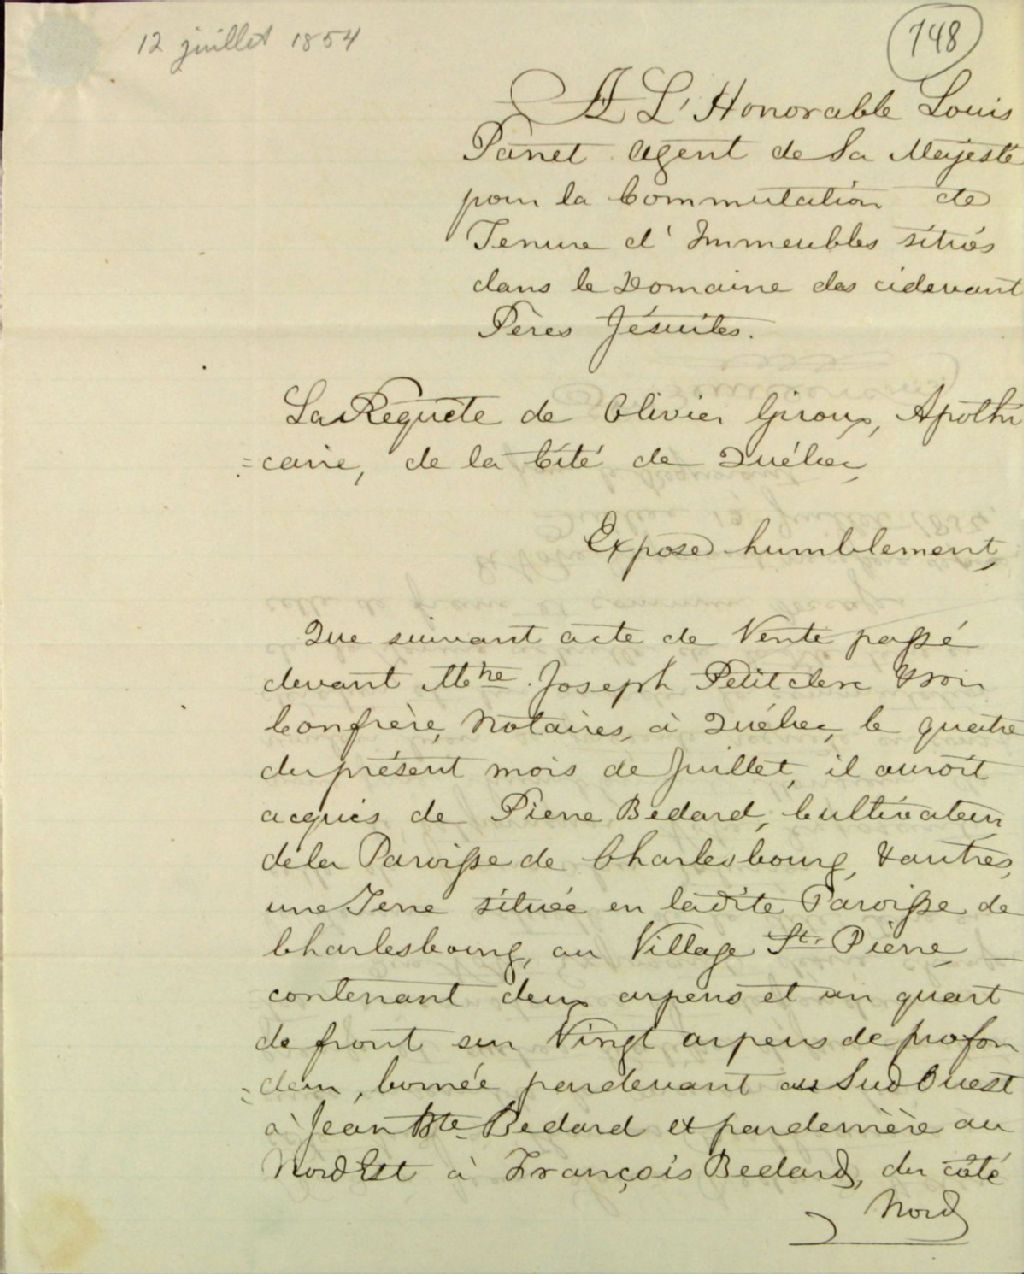 12 juillet 1854
748
A L'Honorable Louis
Panet Agent de Sa Majesté
pour la Commutation de
Tenure d'Immeubles situés
dans le Domaine des cidevant
Pères Jésuites.
La Requête de Olivier Giroux, Apothi
=caire, de la Cité de Québec,
Expose humblement,
Que suivant acte de Vente passé
devant Mtre Joseph Petitclerc & son
Confrère, Notaires, à Québec, le quatre
du présent mois de Juillet, il auroit
acquis de Pierre Bedard, Cultivateur,
de la Paroisse de Charlesbourg, & autres,
une Terre située en ladite Paroisse de
Charlesbourg, au Village St. Pierre,
contenant deux arpens et un quart
de front sur Vingt arpens de profon
=deur, bornée pardevant au Sud Ouest
à Jean Bte Bedard et parderrière au
Nord Est à François Bedard, du côté
Nord